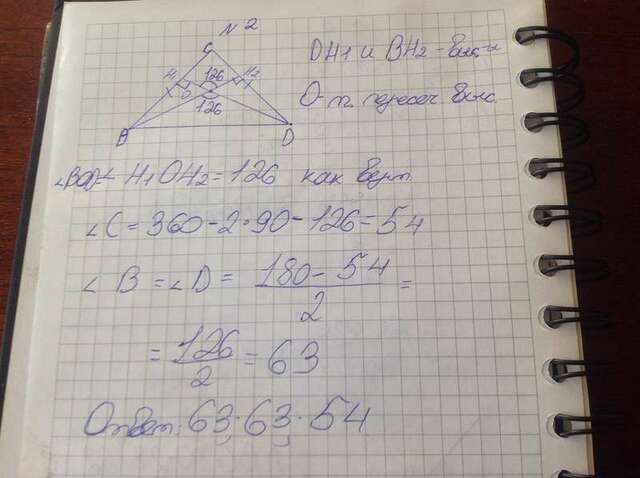 N 2
C
H1 126 H2
O
126
B D
DH1 и BH2 - выс-ы
O - т. пересеч выс.
∠BOD = ∠H1OH2 = 126 как верт.
∠C = 360 - 2·90 - 126 = 54
∠B = ∠D = (180 - 54)/2 =
= 126/2 = 63
Ответ: 63; 63; 54